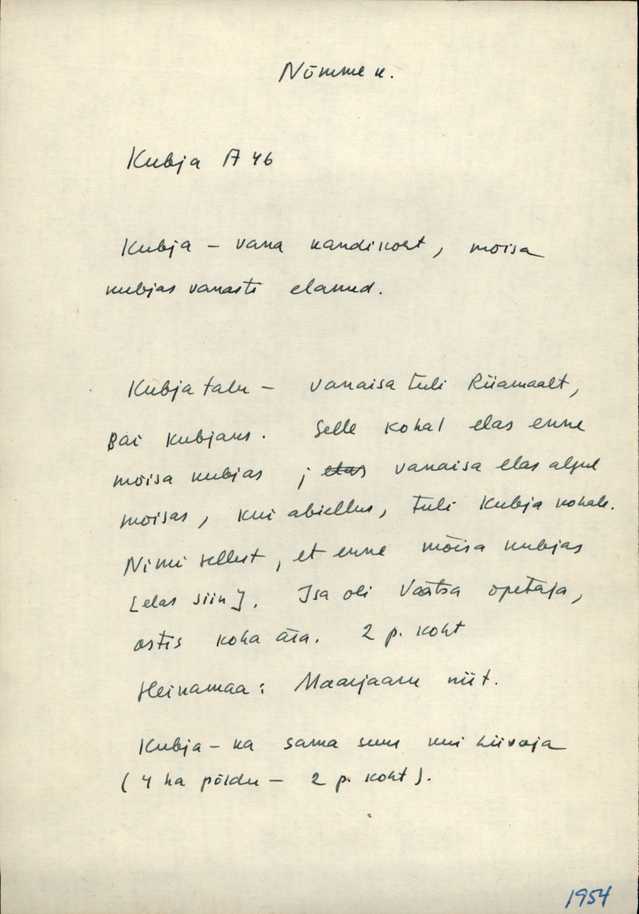 Nõmme k.
Kubja A 46
Kubja – vana kandikoht, mõisa
kubjas vanasti elanud.
Kubja talu – vanaisa tuli Riiamaalt,
sai kubjaks. Selle kohal elas enne
mõisa kubjas; elas vanaisa elas algul
mõisas, kui abiellus, tuli Kubja kohale.
Nimi sellest, et enne mõisa kubjas
[elas siin]. Isa oli Väätsa õpetaja,
ostis koha ära. 2 p. koht
Heinamaa: Maarjaaru niit.
Kubja – ka sama suur kui Liivoja
(4 ha põldu – 2 p. koht).
1954